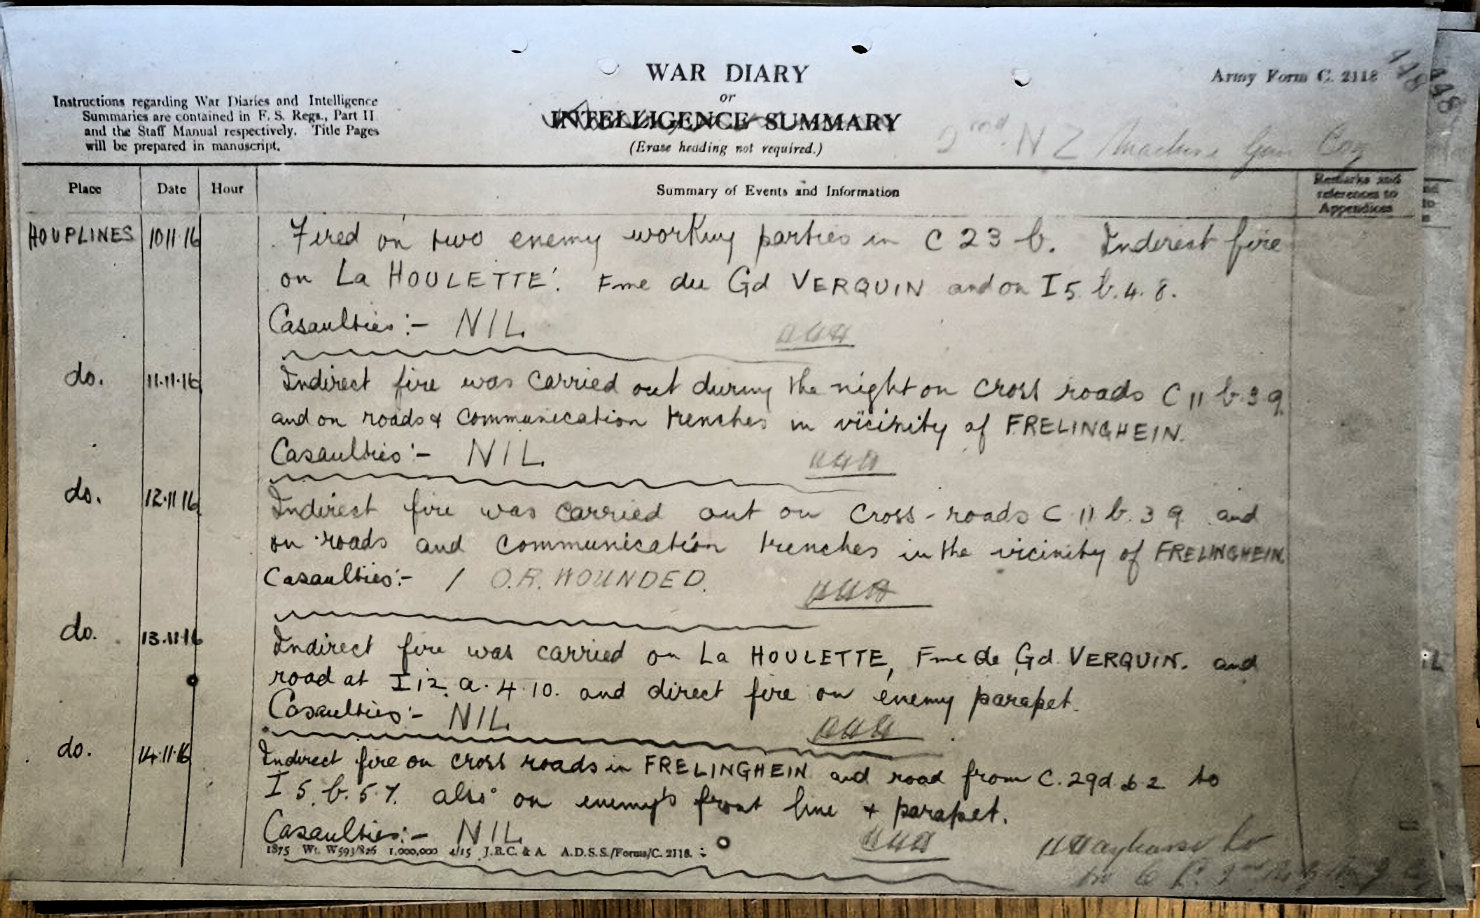 WAR DIARY
or
INTELLIGENCE SUMMARY
(Erase heading not required.)
Army Form C. 2118
Instructions regarding War Diaries and Intelligence
Summaries are contained in F. S. Regs., Part II
and the Staff Manual respectively. Title Pages
will be prepared in manuscript.
2nd NZ Machine Gun Coy
Place Date Hour Summary of Events and Information Remarks and
references to
Appendices
HOUPLINES 10 11 16 Fired on two enemy working parties in C 23 b. Indirect fire
on La HOULETTE. Fme du Gd VERQUIN and on I 5 b. 4. 8.
Casaulties:- NIL
do. 11.11.16 Indirect fire was carried out during the night on cross roads C 11 b. 3 9.
and on roads & communication trenches in vicinity of FRELINGHEIN.
Casaulties:- NIL
do. 12.11 16 Indirect fire was carried out on cross-roads C 11 b. 3 9 and
on roads and communication trenches in the vicinity of FRELINGHEIN
Casaulties:- 1 O.R. WOUNDED.
do. 13.11.16 Indirect fire was carried on La HOULETTE, Fme de Gd VERQUIN. and
road at I 12. a. 4. 10. and direct fire on enemy parapet.
Casaulties:- NIL
do. 14.11.16 Indirect fire on cross roads in FRELINGHEIN and road from C. 29d. b 2 to
I 5. b. 5 7. also on enemy's front line & parapet.
Casaulties:- NIL
1875 Wt. W593/826 1,000,000 4/15 J.B.C. & A. A.D.S.S./Forms/C. 2118.